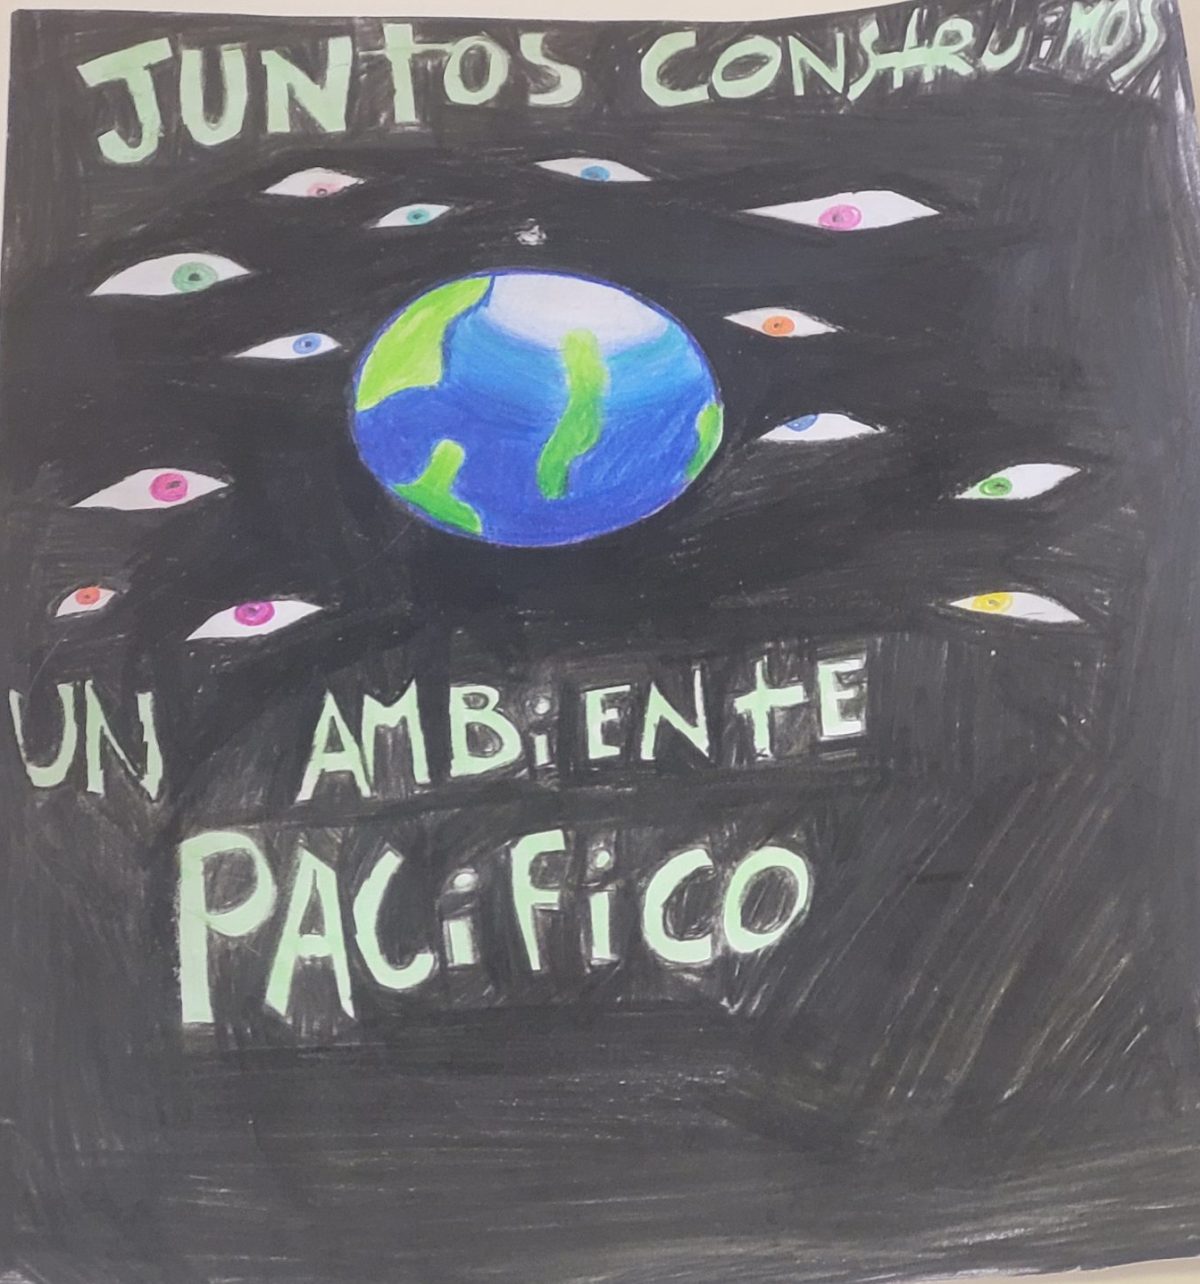 JUNTOS CONSTRUiMOS
UN AMBiENTE
PACiFiCO